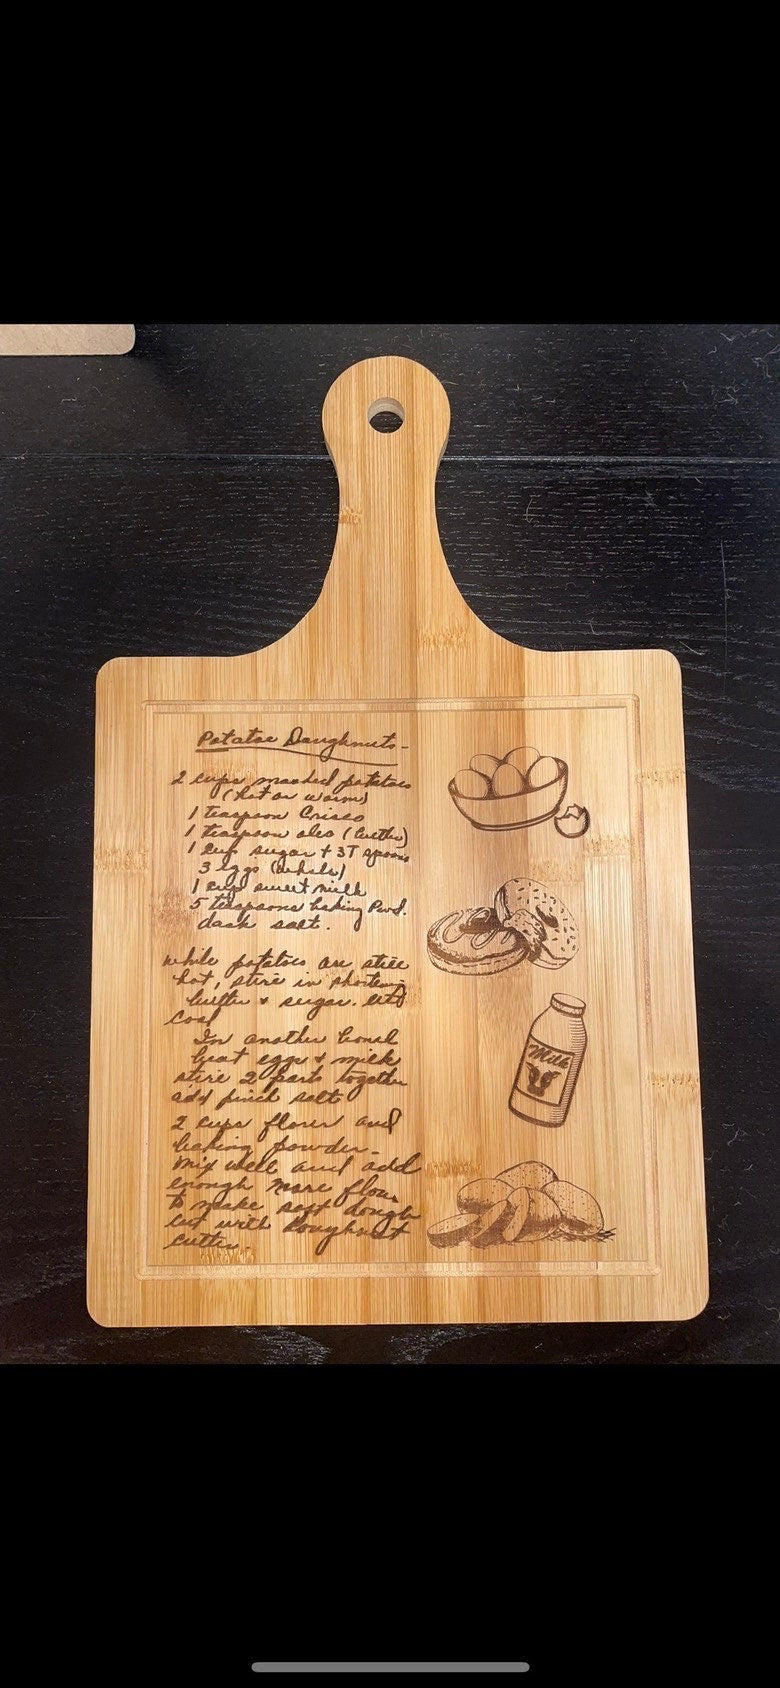 Potatoe Doughnuts-
2 cups mashed potatoes
(hot or warm)
1 teaspoon Crisco
1 teaspoon oleo (butter)
1 cup sugar + 3T spoons
3 eggs (whole)
1 cup sweet milk
5 teaspoons baking Pwd.
dash salt.
While potatoes are still
hot, stire in shortening
butter + sugar. let
cool
In another bowl
beat eggs + milk
stire 2 parts together
add pinch salt
2 cups flour and
baking powder-
Mix well and add
enough more flour
to make soft dough
cut with Doughnut
cutter
Milk